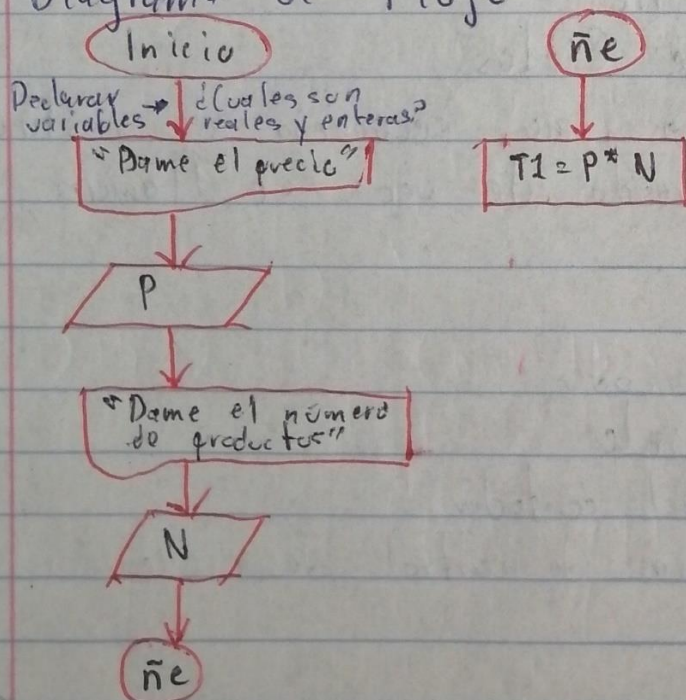 Diagrama de Flujo
Inicio
Declarar variables → ¿Cuales son
reales y enteras?
"Dame el precio"
P
"Dame el número
de productos"
N
ñe
ñe
T1 = P * N